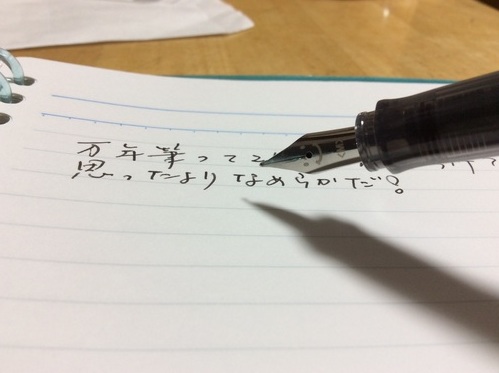 万年筆って
思ったよりなめらかだ!